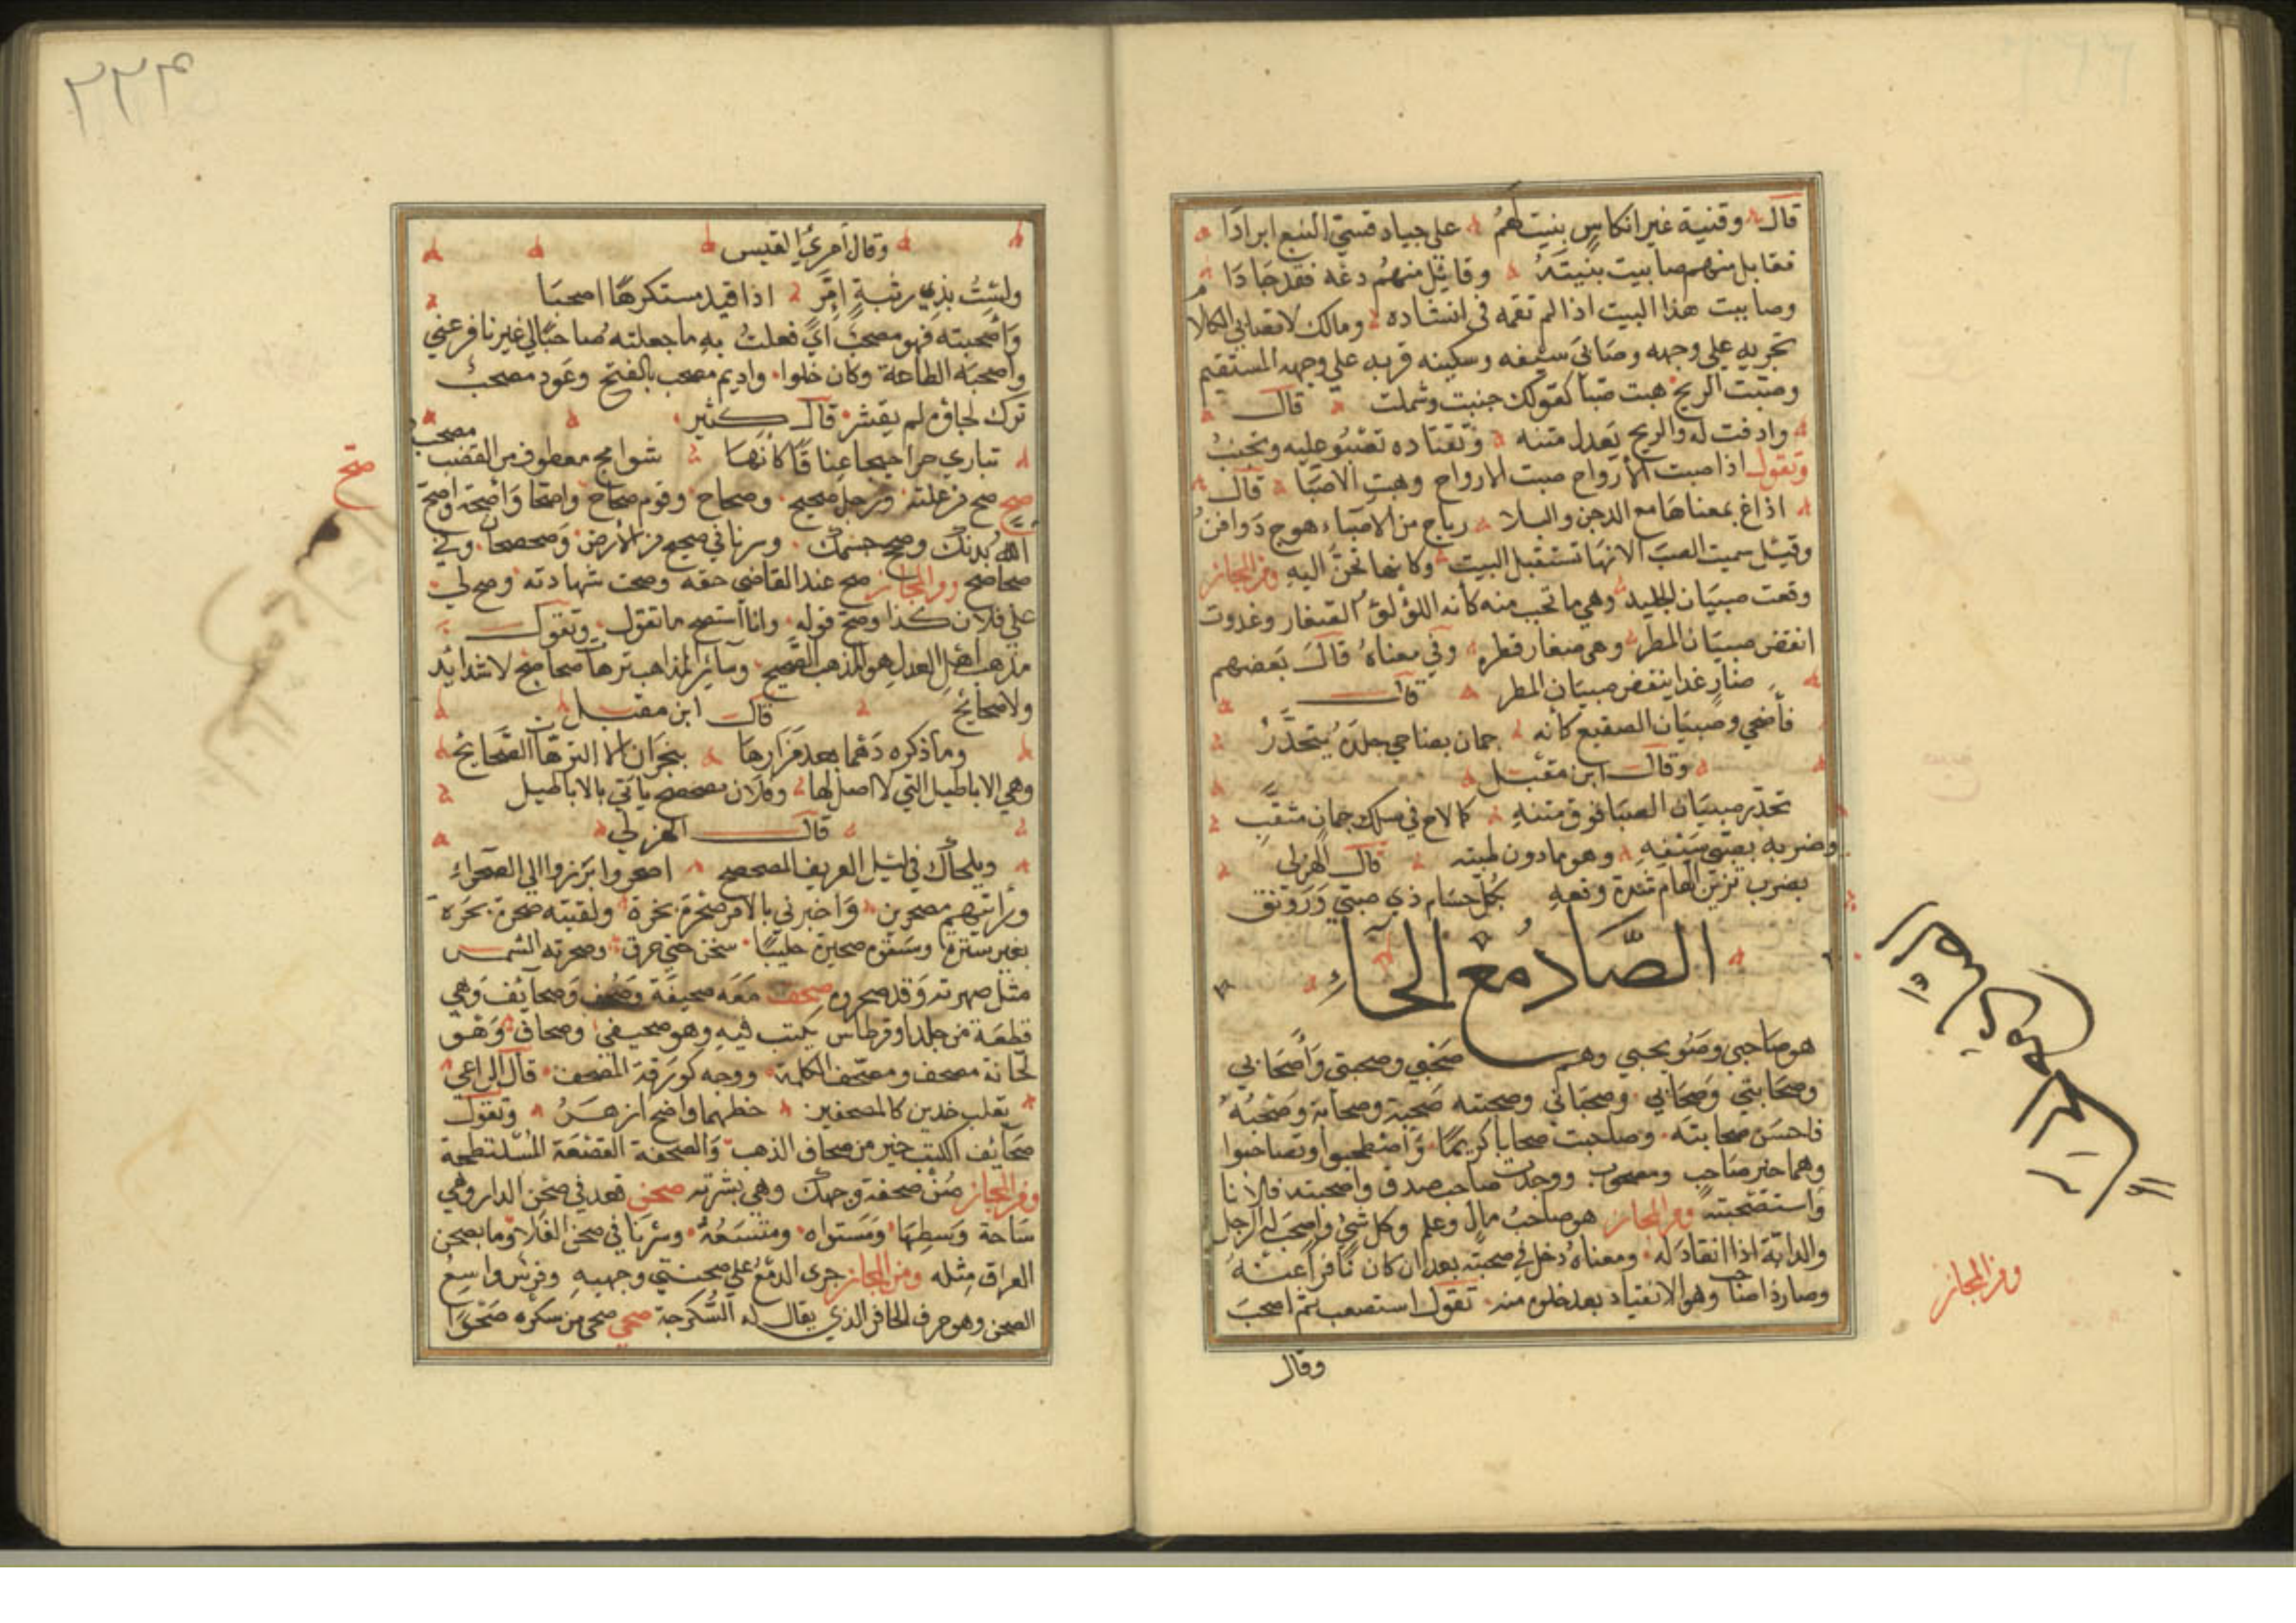 قال وفتية غير انكاس بنيت لهم على جياد قسي النبع ابرادا
فقابل منهم صابيت بنيته وقائل منهم دعه فقد جادا
وصابيت هذا البيت اذا لم تقمه في انشاده ومالك لا تصابي الكلام
تجريه على وجهه وصابى سيفه وسكينه قربه على وجهه المستقيم
وصبت الريح هبت صبا كقولك جنبت وشملت قال
وادفت له والريح يعدل متنه وتقتاده تصبو عليه وتجنب
وتقول اذا صبت الارواح صبت الارواح وهبت الاصبا قال
اذا بمعناها مع الدجن والبلا رياح من الاصباء هوج دوافن
وقيل سميت الصبا لانها تستقبل البيت وكانها تحن اليه ومن المجاز
وقعت صبيان الجليد وهي ما تحبب منه كأنه اللؤلؤ الصغار وغدوت
انفض صبيان المطر وهي صغار قطره وفي معناه قال بعضهم
غدا ينفض صبيان المطر قال
فأضحى وصبيان الصقيع كأنه جمان بضاحي جلده يتحدر
وقال ابن مقبل
تحدر صبيان الصبا فوق متنه كما لاح في سلك جمان مثقب
وضربه بصبي سيفه وهو ما دون ظبته قال الهزلي
بضرب تزين الهام شدة وقعه بكل حسام ذي صبي ورونق
الصاد مع الحاء
هو صاحبي وصويحبي وهم صحبي وصحبتي وأصحابي
وصحابتي وصحابي وصحباني وصحبته صحبة وصحابة وصحبه
فاحسن صحابته وصاحبت صحابا كريما واصطحبوا وتصاحبوا
وهما خير صاحب ومصحوب ووجدت صاحب صدق وأصحبته فلانا
واستصحبته ومن المجاز هو صاحب مال وعلم وكل شئ واصحب له الرجل
والدابة اذا انقاد له ومعناه دخل في صحبته بعد ان كان نافرا عنه
وصار ذا صاحب وهو الانقياد بعد خلوه منه تقول استصعب ثم اصحب
وقال
ومن المجاز
٢٢٣
وقال أمرئ القيس
ولست بذي رثية امر اذا قيد مستكرها اصحبا
وأصحبته فهو مصحب أي فعلت به ما جعلته صاحبا لي غير نافر عني
وأصحبه الطاعة وكان خلوا واديم مصحب بالفتح وعود مصحب
ترك لحاؤه لم يقشر قال كثير
تباري حراجيجا عتاقا كأنها شرائج معطوف من القضب مصحب
صح
صح صح من علته ورجل صحيح وصحاح وقوم صحاح واصحا وأصحة واصح
الله بدنك وصح جسمك وسرنا في صحيح من الارض وصحصحان وفي
صحاصح ومن المجاز صح عند القاضي حقه وصحت شهادته وصح لي
على فلان كذا وصح قوله وانا أستصح ما تقول وتقول
مذهب اهل العدل هو المذهب الصحيح وسائر المذاهب ترهات صحاصح لا شدائد
ولا صحايح قال ابن مقبل
وما ذكره دهما بعد مزارها بنجران الا الترهات الصحايح
وهي الاباطيل التي لا اصل لها وفلان مصحصح يأتي بالاباطيل
قال الهزلي
ويلحاك في ليل العريف المصحصح اصحروا ابرزوا الى الصحراء
ورأيتهم مصحرين وأخبرني بالامر صحرة بحرة ولقيته صحرة بحرة
بغير سترة وسقوه صحيرة حليبا سخن حتى حرق وصحرته الشمس
مثل صهرته وقد صحروه صحف معه صحيفة وصحف وصحائف وهي
قطعة من جلد او قرطاس يكتب فيه وهو صحيفي وصحاف وهو
لحانة مصحف ومصحف الكلمة ووجه كورقة المصحف قال الراعي
يقلب خدين كالمصحفين خطهما واضح ازهر وتقول
صحائف الكتب خير من صحاف الذهب والصحفة القصعة المسلنطحة
ومن المجاز صن صحيفة وجهك وهي بشرته صحن قعد في صحن الدار وهي
ساحة وسطها ومستواه ومتسعه وسرنا في صحن الفلاة وما بصحن
العراق مثله ومن المجاز جرى الدمع على صحنتي وجهه وفرس واسع
الصحن وهو جرف الحافر الذي يقال له السكرجة صحي صحى من سكره صحوا